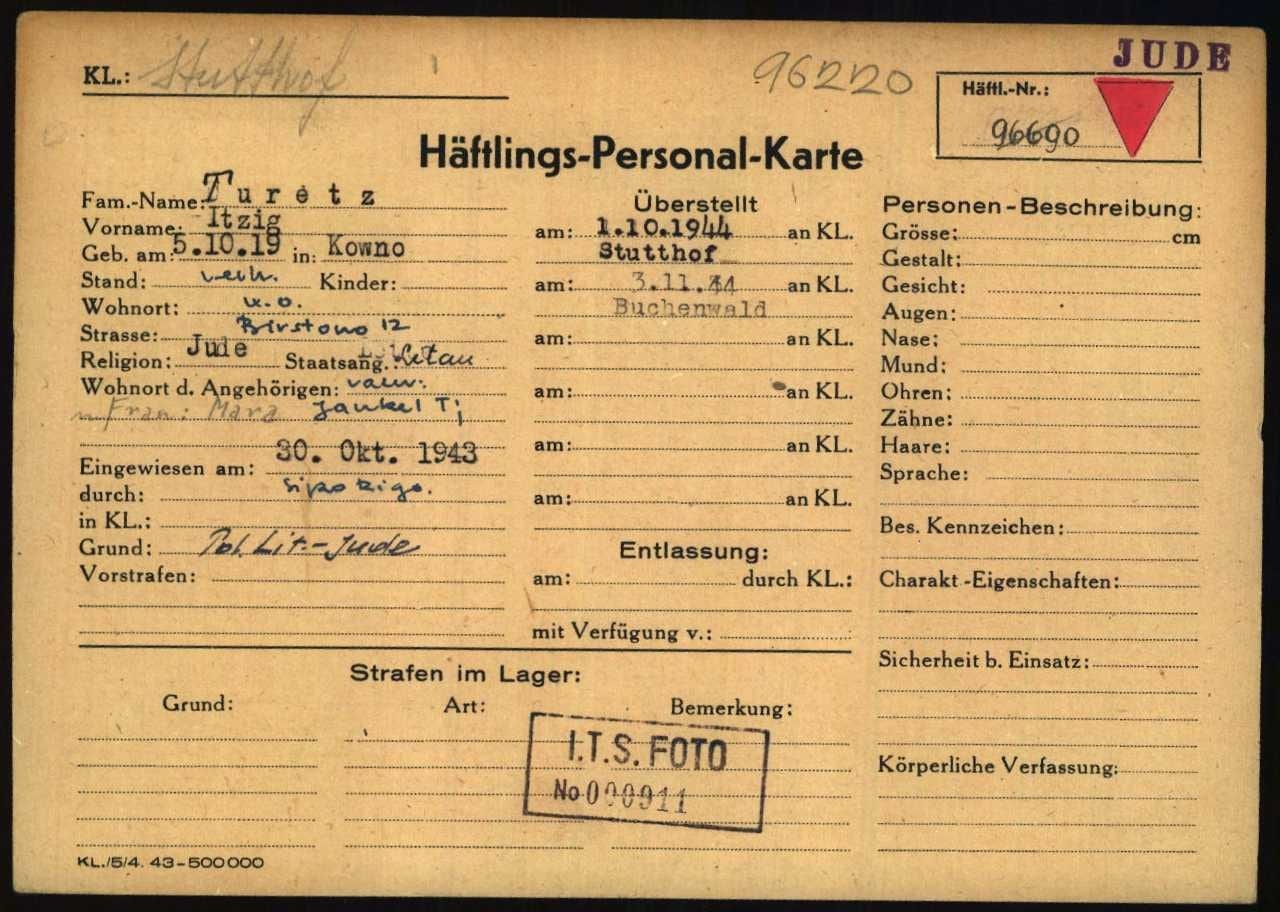 KL.: Stutthof
96220
JUDE
Häftl.-Nr.:
96690
Häftlings-Personal-Karte
Fam.-Name: Turetz
Vorname: Itzig
Geb. am: 5.10.19 in: Kowno
Stand: verh. Kinder:
Wohnort: w.o.
Strasse: Birstono 12
Religion: Jude Staatsang.: Litau
Wohnort d. Angehörigen:
Frau: Mara Jankel T;
Eingewiesen am: 30. Okt. 1943
durch: Sipo Riga.
in KL.:
Grund: Pol. Lit.-Jude
Vorstrafen:
Überstellt
am: 1.10.1944 an KL.
Stutthof
am: 3.11.44 an KL.
Buchenwald
am: an KL.
am: an KL.
am: an KL.
am: an KL.
Entlassung:
am: durch KL.:
mit Verfügung v.:
Personen-Beschreibung:
Grösse: cm
Gestalt:
Gesicht:
Augen:
Nase:
Mund:
Ohren:
Zähne:
Haare:
Sprache:
Bes. Kennzeichen:
Charakt.-Eigenschaften:
Sicherheit b. Einsatz:
Körperliche Verfassung:
Strafen im Lager:
Grund: Art: Bemerkung:
I.T.S. FOTO
No 000911
KL./5/4. 43-500000